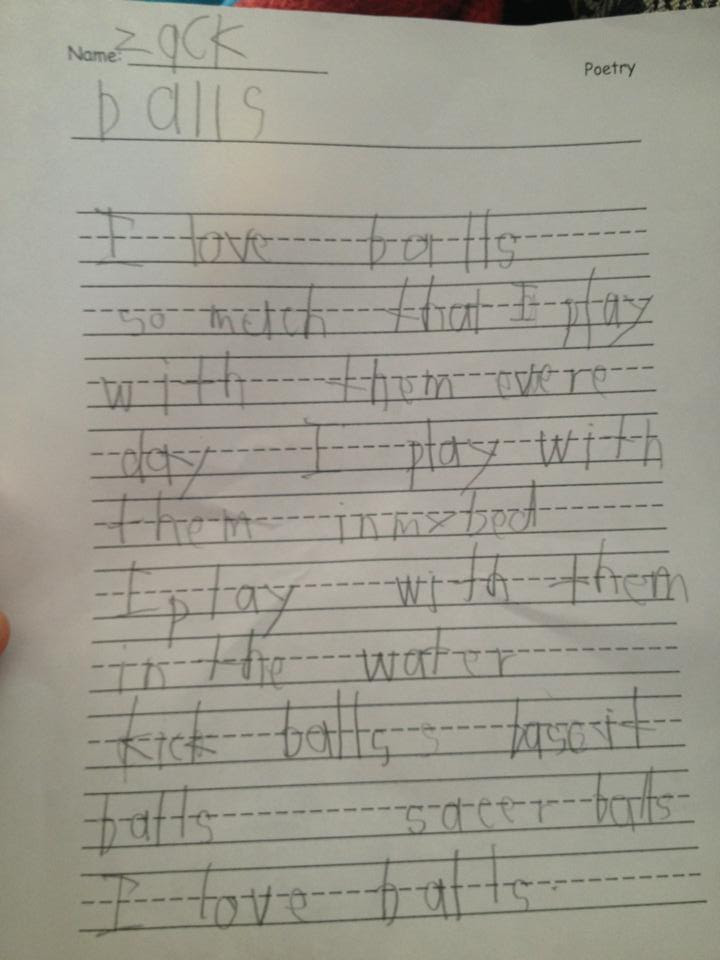 Name: Zack
Poetry
balls
I love balls
so mach that I play
with them evere
day I play with
them in my bed
I play with them
in the water
kick balls s
balls sacer balls
I love balls